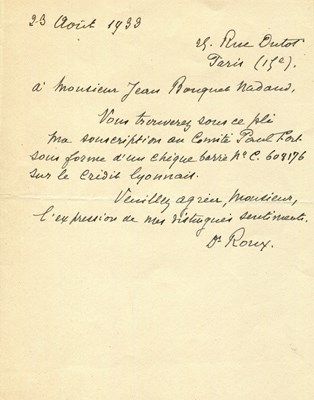 23 Août 1933
25, Rue Dutot
Paris (15e).
à Monsieur Jean Bouquet Nadaud,
Vous trouverez sous ce pli
ma souscription au Comité Paul Fort
sous forme d'un chèque barré No C. 608176
sur le Crédit Lyonnais.
Veuillez agréer, Monsieur,
l'expression de mes distingués sentiments.
Dr Roux.